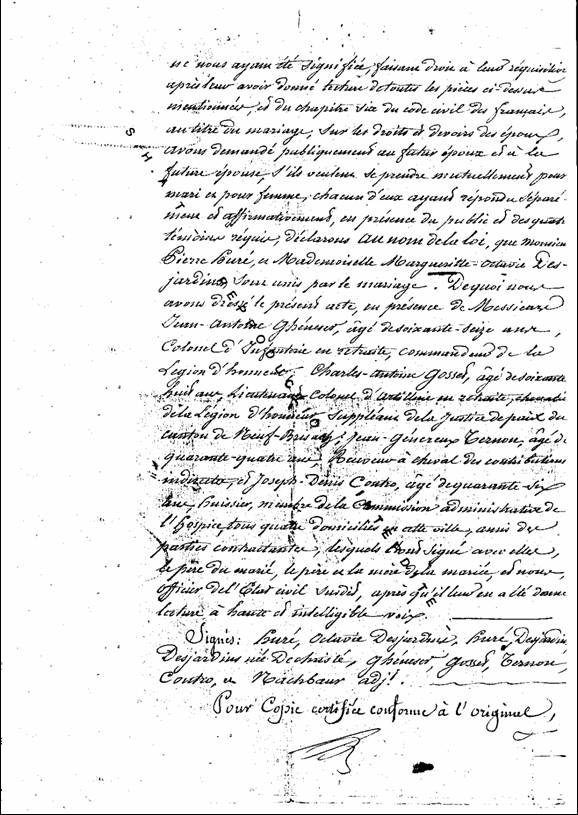 ne nous ayant été signifiée, faisant droit à leur réquisition
après leur avoir donné lecture de toutes les pièces ci-dessus
mentionnées, et du chapitre six du code civil des français,
au titre du mariage, sur les droits et devoirs des époux,
avons demandé publiquement au futur époux et à la
future épouse, s'ils veulent se prendre mutuellement pour
mari et pour femme, chacun d'eux ayant répondu séparé-
ment et affirmativement, en présence du public et des quatre
témoins requis, déclarons au nom de la loi, que monsieur
Pierre huré, et Mademoiselle Marguerite-octavie Des-
jardins, sont unis par le mariage. De quoi nous
avons dressé le présent acte, en présence de Messieurs
Jean-Antoine Ghéneser, âgé de soixante-seize ans,
Colonel d'Infanterie en retraite, commandeur de la
Légion d'honneur, Charles-antoine Gosset, âgé de soixante
huit ans, Lieutenant colonel d'artillerie en retraite, chevalier
de la Légion d'honneur, Suppléant de la Justice de paix du
canton de Neuf-Brisach, Jean-Généreux Ternon, âgé de
quarante-quatre ans, Receveur à cheval des contributions
indirectes, et Joseph-Denis Contro, âgé de quarante-six
ans, huissier, membre de la Commission administrative de
l'hospice, tous quatre domiciliés en cette ville, amis des
parties contractantes, lesquels ont signé avec elles,
le père du marié, le père et la mère de la mariée, et nous
officier de l'Etat civil susdit, après qu'il leur en a été donné
lecture à haute et intelligible voix.
Signés: huré, octavie Desjardins, huré, Desjardins,
Desjardins née Dechaisté, Ghéneser, Gosset, Ternon,
Contro, et Nachbaur adjt.
Pour Copie certifiée conforme à l'original,